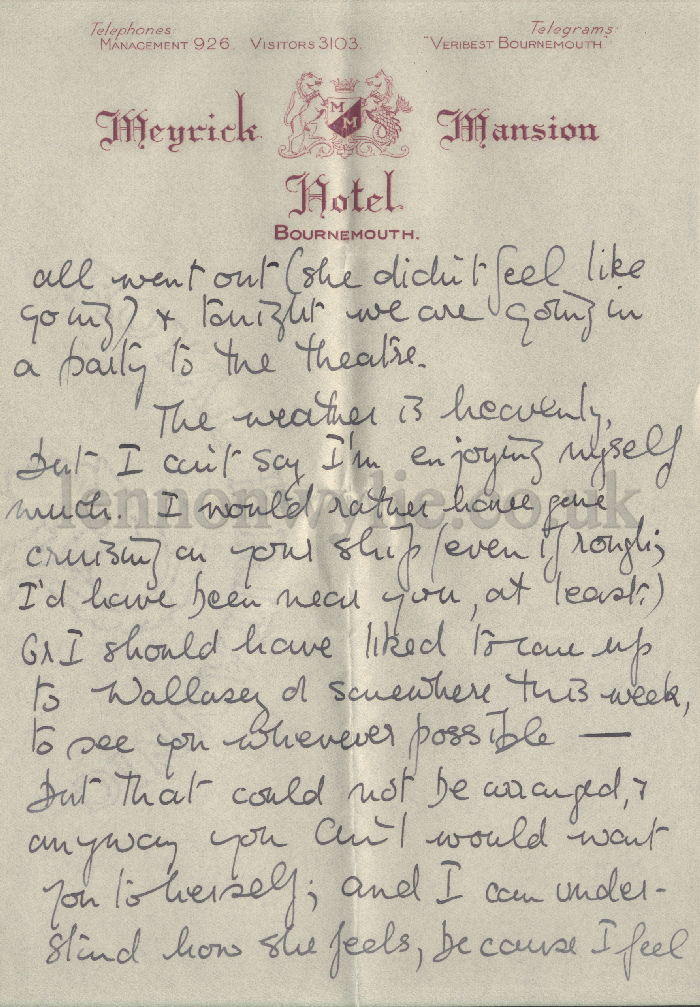 Telephones
MANAGEMENT 926. VISITORS 3103.
Telegrams:
"VERIBEST BOURNEMOUTH"
M
M
Meyrick Mansion
Hotel
BOURNEMOUTH.
all went out (she didn't feel like
going) & tonight we are going in
a party to the theatre.
The weather is heavenly,
but I can't say I'm enjoying myself
much. I would rather have gone
lennonwylie.co.uk
cruising on your ship (even if rough;
I'd have been near you, at least.)
Or I should have liked to come up
to Wallasey or somewhere this week,
to see you whenever possible —
but that could not be arranged, &
anyway your would want
you to herself; and I can under-
stand how she feels, because I feel